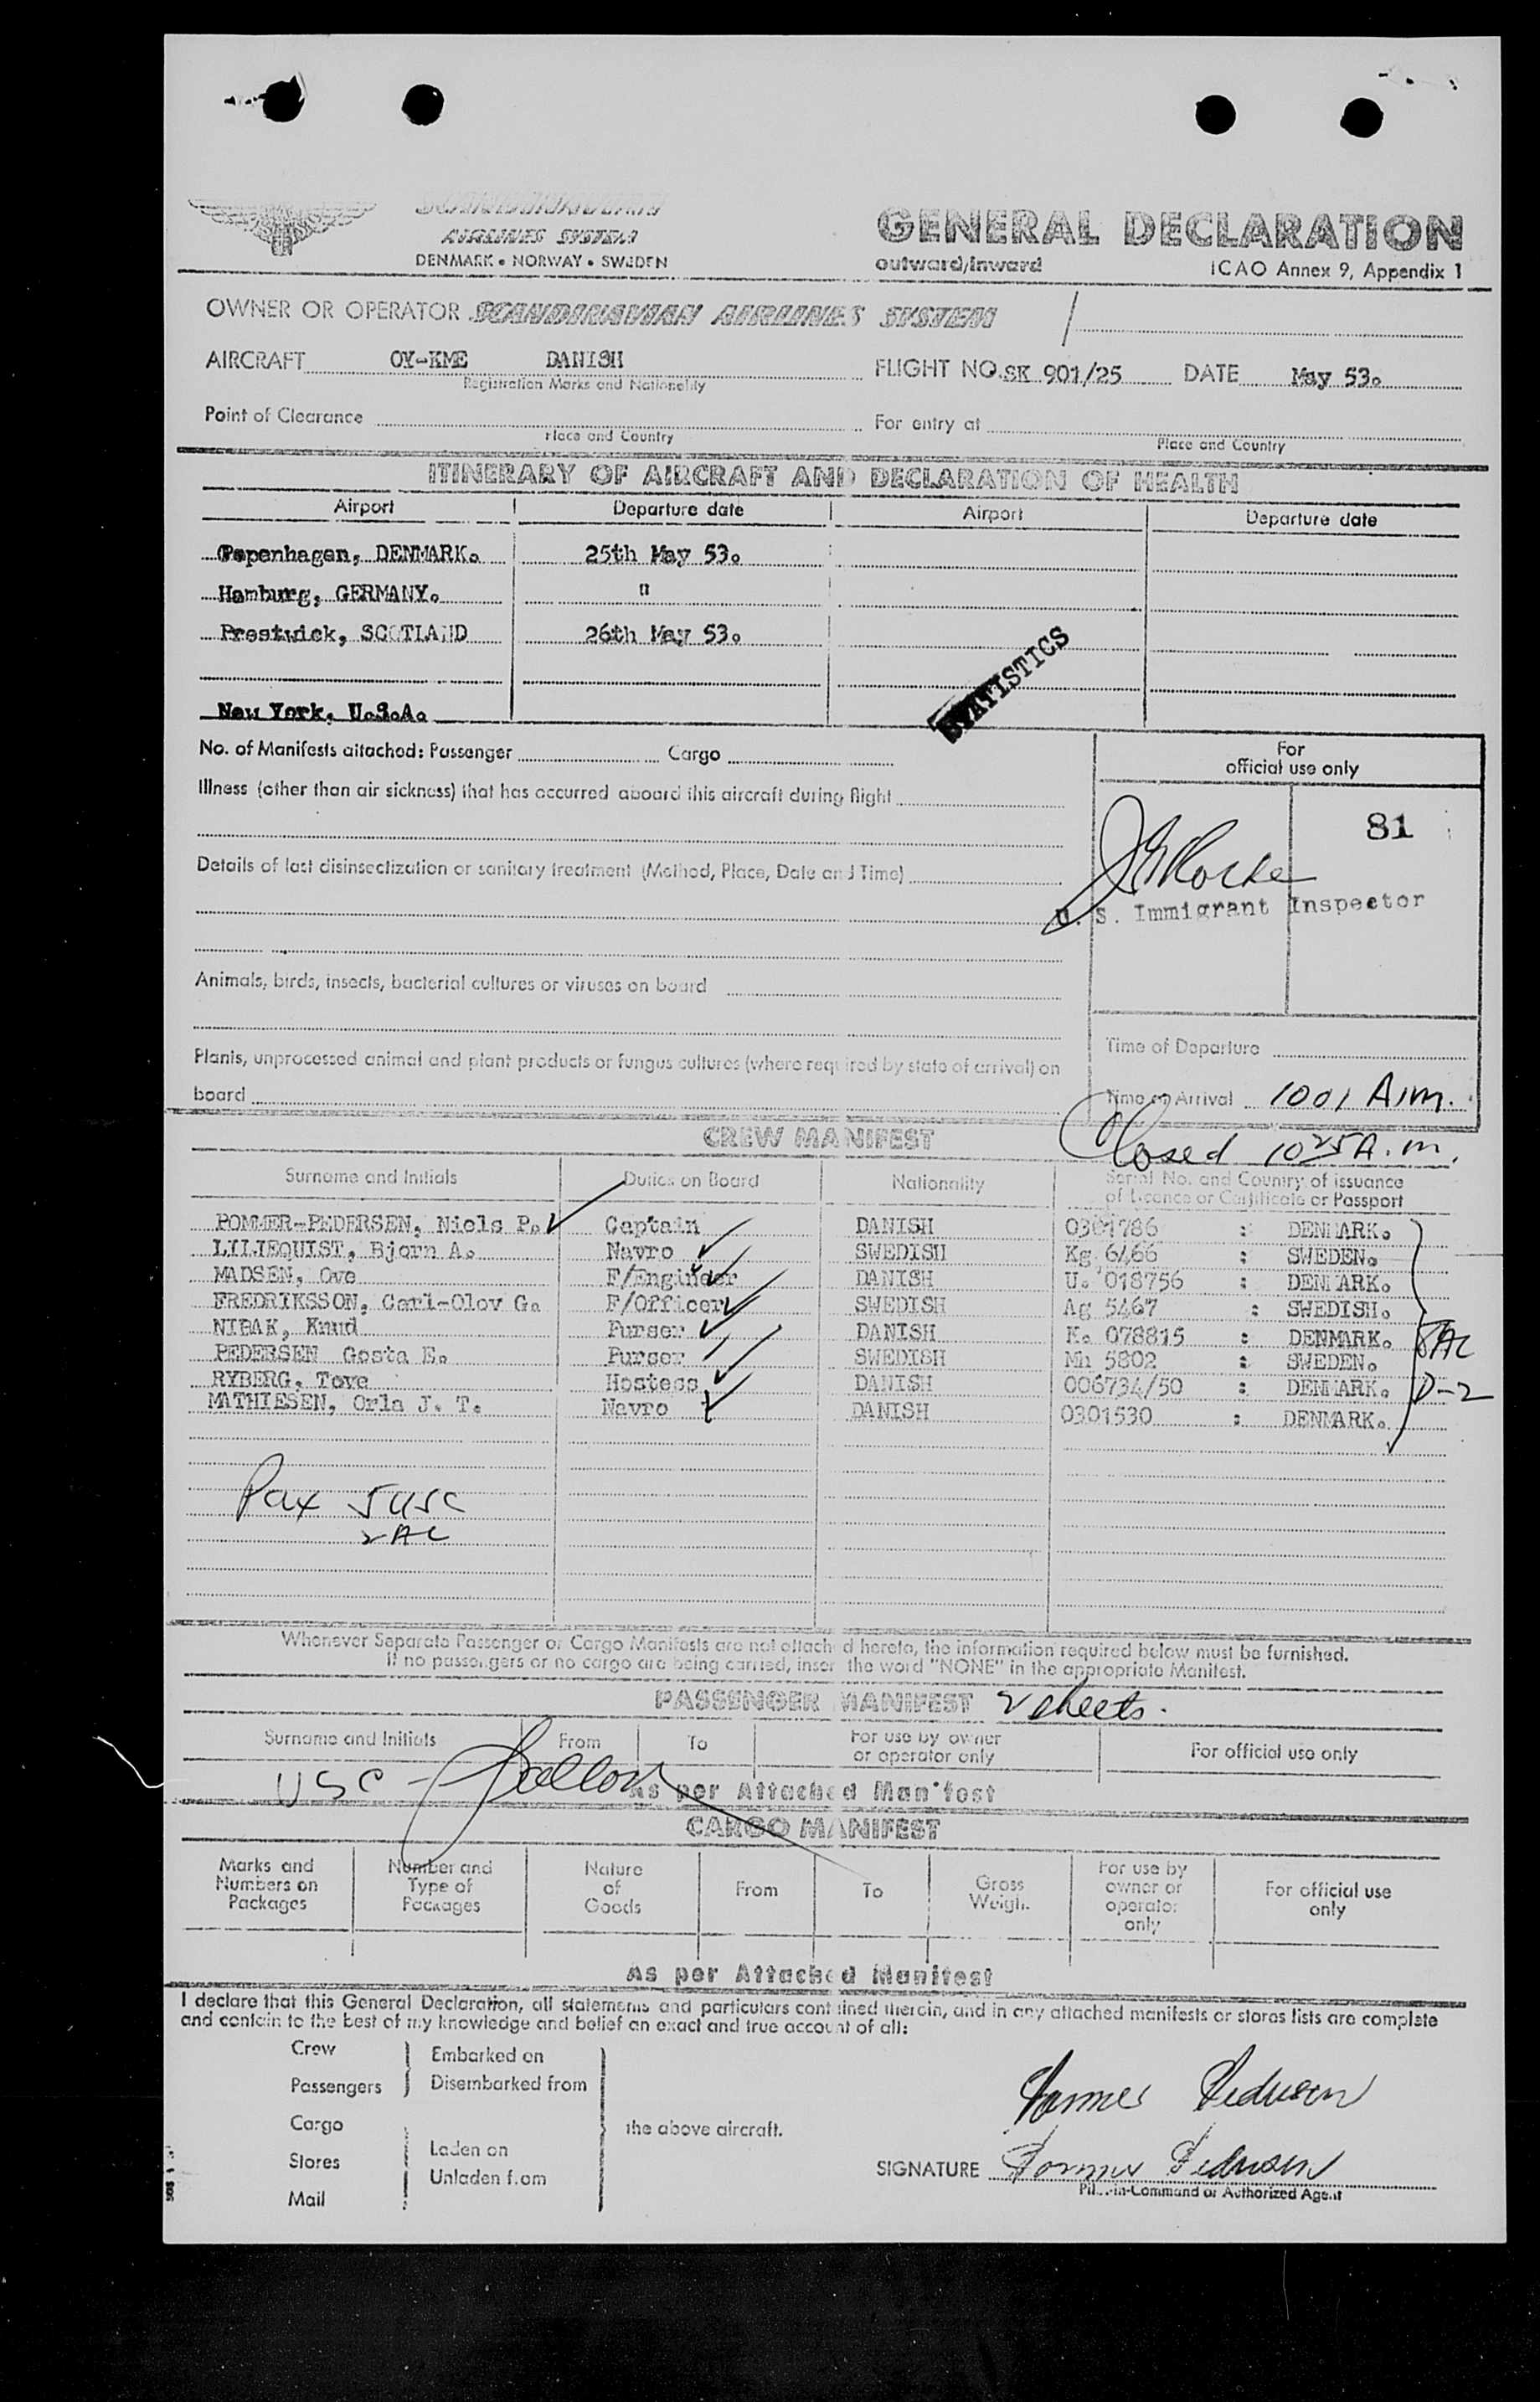 SCANDINAVIAN
AIRLINES SYSTEM
DENMARK • NORWAY • SWEDEN
GENERAL DECLARATION
outward/inward
ICAO Annex 9, Appendix 1
OWNER OR OPERATOR SCANDINAVIAN AIRLINES SYSTEM /
AIRCRAFT OY-KME DANISH FLIGHT NO. SK 901/25 DATE May 53.
Registration Marks and Nationality
Point of Clearance For entry at
Place and Country Place and Country
ITINERARY OF AIRCRAFT AND DECLARATION OF HEALTH
Airport Departure date Airport Departure date
Copenhagen, DENMARK. 25th May 53.
Hamburg, GERMANY. "
Prestwick, SCOTLAND 26th May 53.
STATISTICS
New York, U.S.A.
No. of Manifests attached: Passenger Cargo
For
official use only
Illness (other than air sickness) that has occurred aboard this aircraft during flight
81
Details of last disinsectization or sanitary treatment (Method, Place, Date and Time)
U. S. Immigrant Inspector
Animals, birds, insects, bacterial cultures or viruses on board
Plants, unprocessed animal and plant products or fungus cultures (where required by state of arrival) on
board
Time of Departure
Time of Arrival 1001 A.m.
Closed 1025 A.m.
CREW MANIFEST
Surname and Initials Duties on Board Nationality Serial No. and Country of issuance
of Licence or Certificate or Passport
POMMER-PEDERSEN, Niels P. Captain DANISH 0301786 : DENMARK.
LILJEQUIST, Bjorn A. Navro SWEDISH Kg 6466 : SWEDEN.
MADSEN, Ove F/Engineer DANISH U. 018756 : DENMARK.
FREDRIKSSON, Carl-Olov G. F/Officer SWEDISH Ag 5467 : SWEDISH.
NIBAK, Knud Purser DANISH K. 078815 : DENMARK.
PEDERSEN Gosta E. Purser SWEDISH Mh 5802 : SWEDEN.
RYBERG, Tove Hostess DANISH 006734/50 : DENMARK.
MATHIESEN, Orla J. T. Navro DANISH 0301530 : DENMARK.
8AC
D-2
Pax 5 USC
2 AC
Whenever Separate Passenger or Cargo Manifests are not attached hereto, the information required below must be furnished.
If no passengers or no cargo are being carried, insert the word "NONE" in the appropriate Manifest.
PASSENGER MANIFEST 2 sheets.
Surname and Initials From To For use by owner
or operator only For official use only
USC -
As per Attached Manifest
CARGO MANIFEST
Marks and
Numbers on
Packages
Number and
Type of
Packages
Nature
of
Goods
From
To
Gross
Weight
For use by
owner or
operator
only
For official use
only
As per Attached Manifest
I declare that this General Declaration, all statements and particulars contained therein, and in any attached manifests or stores lists are complete
and contain to the best of my knowledge and belief an exact and true account of all:
Crew
Passengers
Embarked on
Disembarked from
Cargo
Stores
Mail
Laden on
Unladen from
the above aircraft.
Pommer Pedersen
SIGNATURE Pommer Pedersen
Pilot-in-Command or Authorized Agent